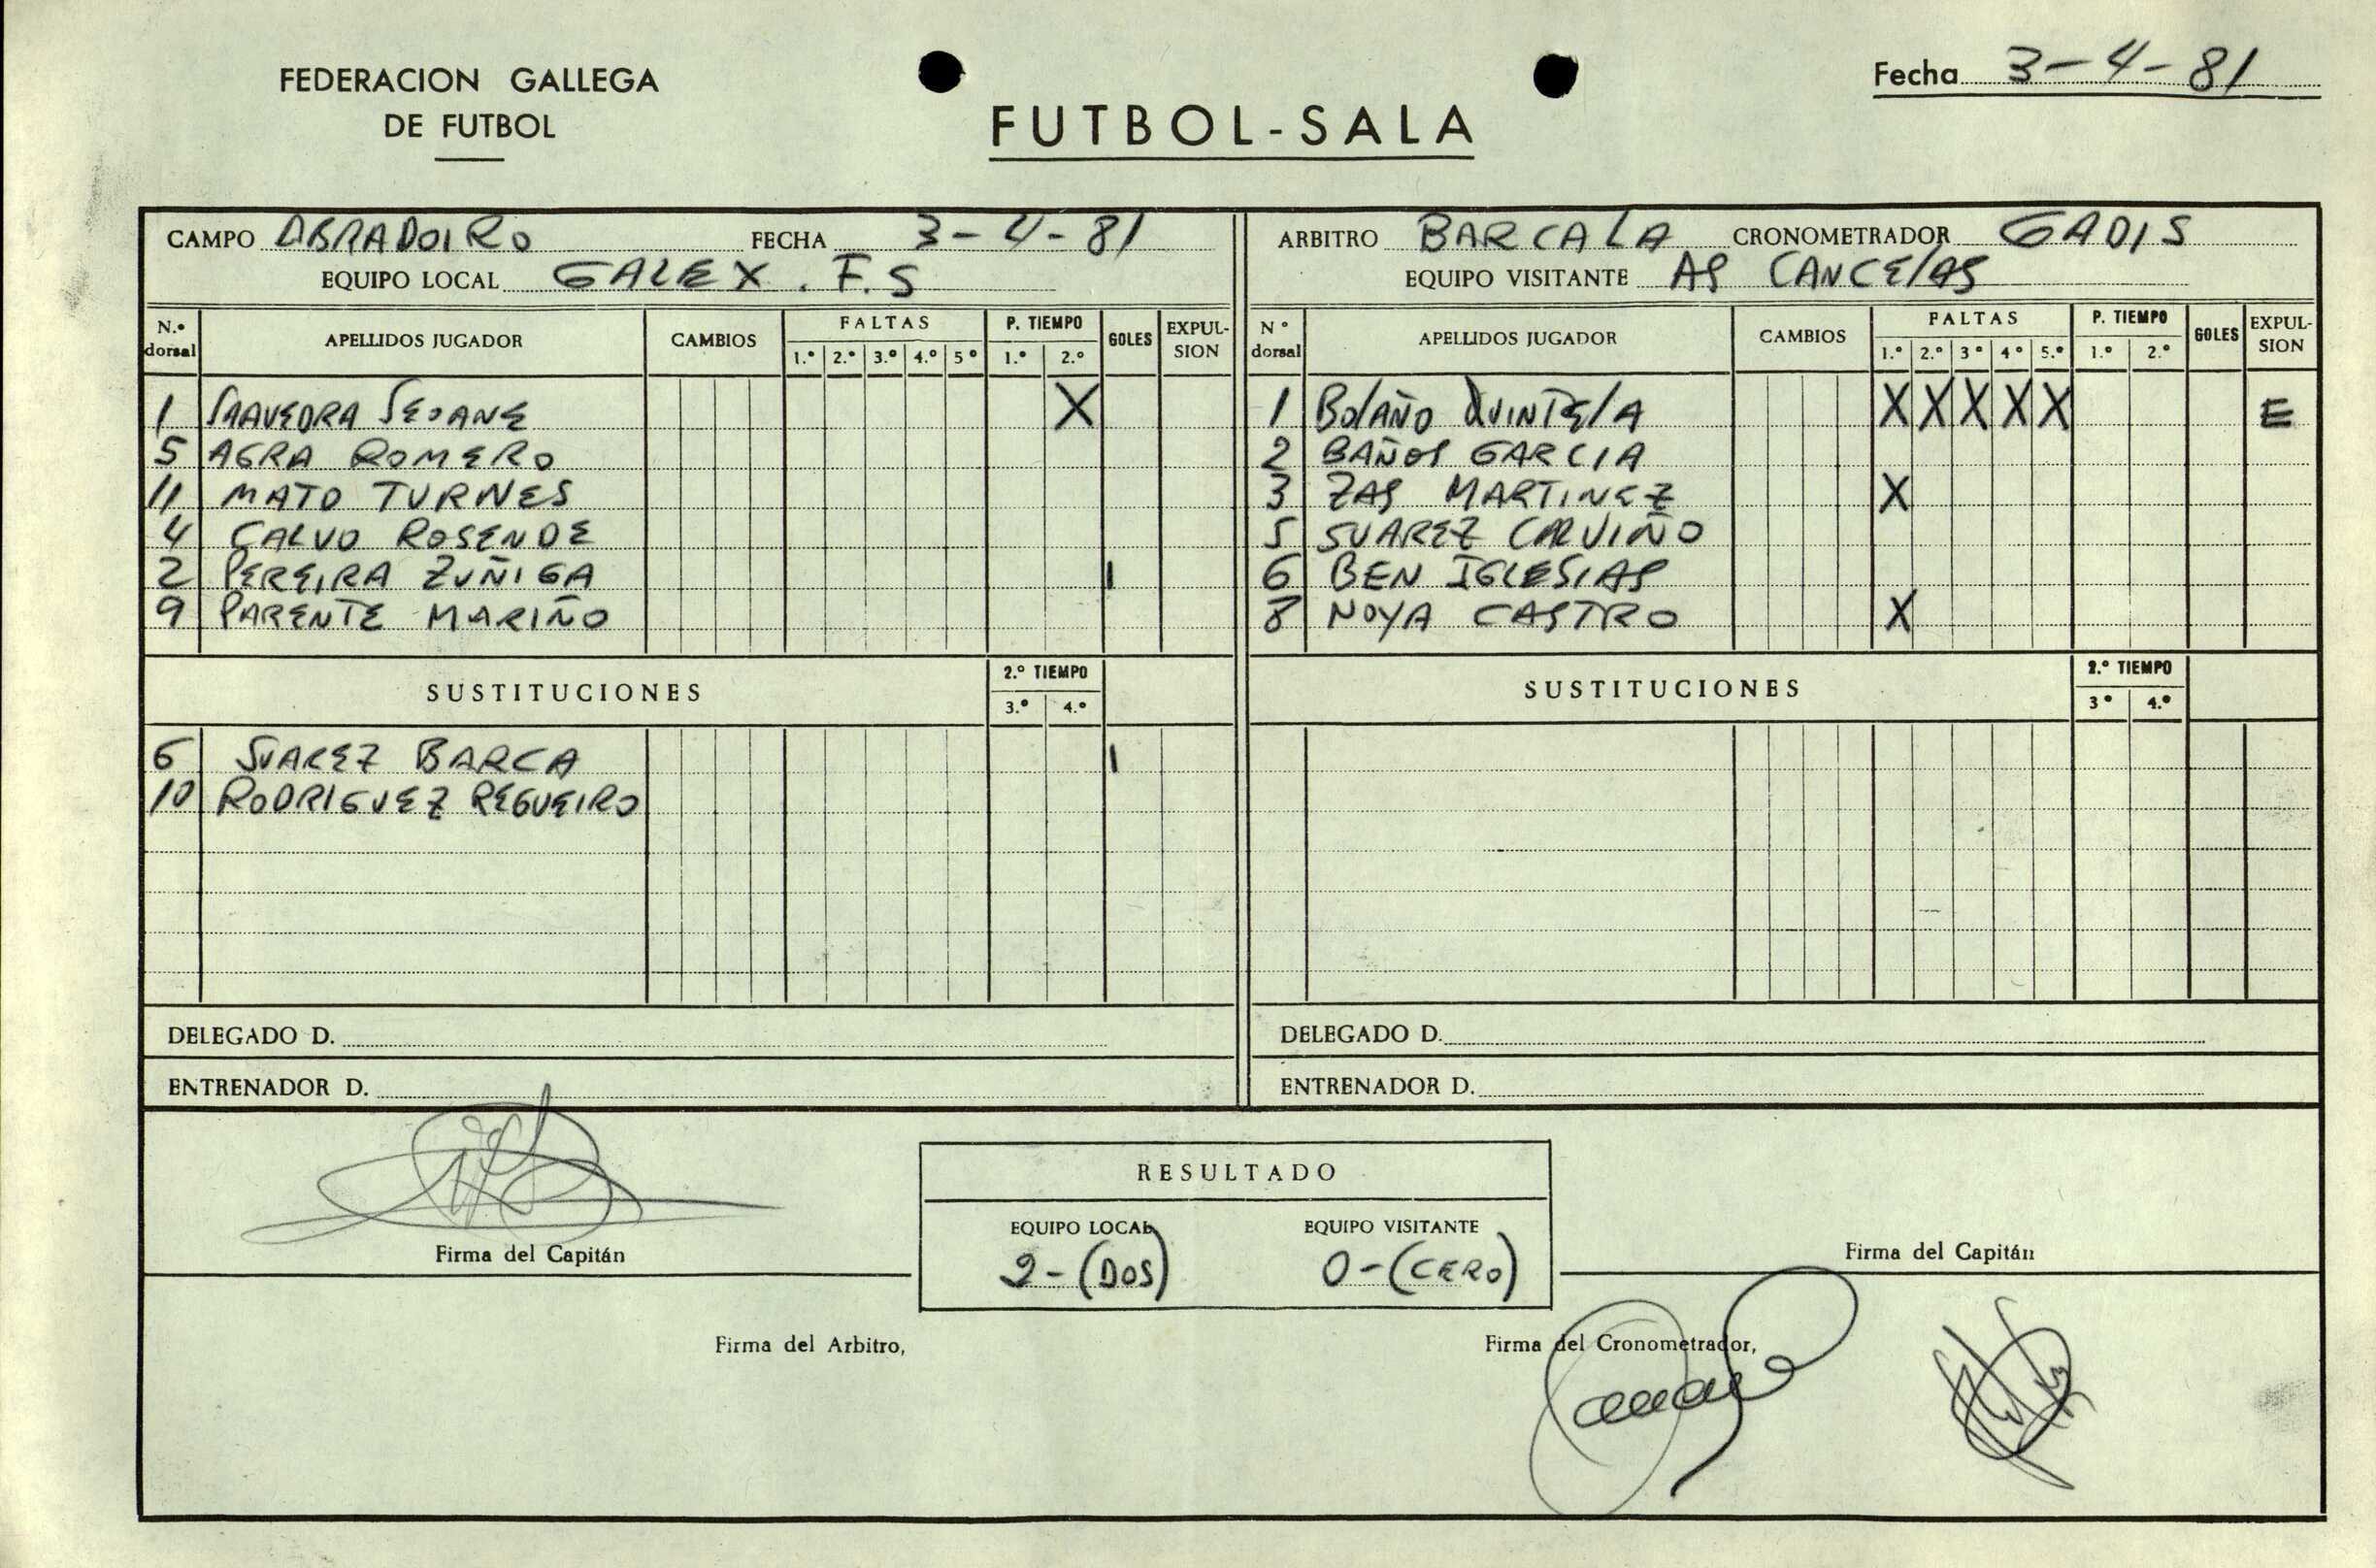 FEDERACION GALLEGA
DE FUTBOL
FUTBOL-SALA
Fecha 3-4-81
CAMPO OBRADOIRO FECHA 3-4-81
EQUIPO LOCAL GALEX. F.S
N.º dorsal APELLIDOS JUGADOR CAMBIOS FALTAS 1.º 2.º 3.º 4.º 5º P. TIEMPO 1.º 2.º GOLES EXPUL-SION
1 SAAVEDRA SEOANE X
5 AGRA ROMERO
11 MATO TURNES
4 CALVO ROSENDE
2 PEREIRA ZUÑIGA 1
9 PARENTE MARIÑO
SUSTITUCIONES 2.º TIEMPO 3.º 4.º
6 SUAREZ BARCA 1
10 RODRIGUEZ REGUEIRO
DELEGADO D.
ENTRENADOR D.
ARBITRO BARCALA CRONOMETRADOR GADIS
EQUIPO VISITANTE AS CANCELAS
Nº dorsal APELLIDOS JUGADOR CAMBIOS FALTAS 1.º 2.º 3º 4º 5.º P. TIEMPO 1.º 2.º GOLES EXPUL-SION
1 BOLAÑO QUINTELA X X X X X E
2 BAÑOS GARCIA
3 ZAS MARTINEZ X
5 SUAREZ CALVIÑO
6 BEN IGLESIAS
8 NOYA CASTRO X
SUSTITUCIONES 2.º TIEMPO 3º 4.º
DELEGADO D.
ENTRENADOR D.
RESULTADO
EQUIPO LOCAL EQUIPO VISITANTE
2-(DOS) 0-(CERO)
Firma del Capitán
Firma del Capitán
Firma del Arbitro,
Firma del Cronometrador,